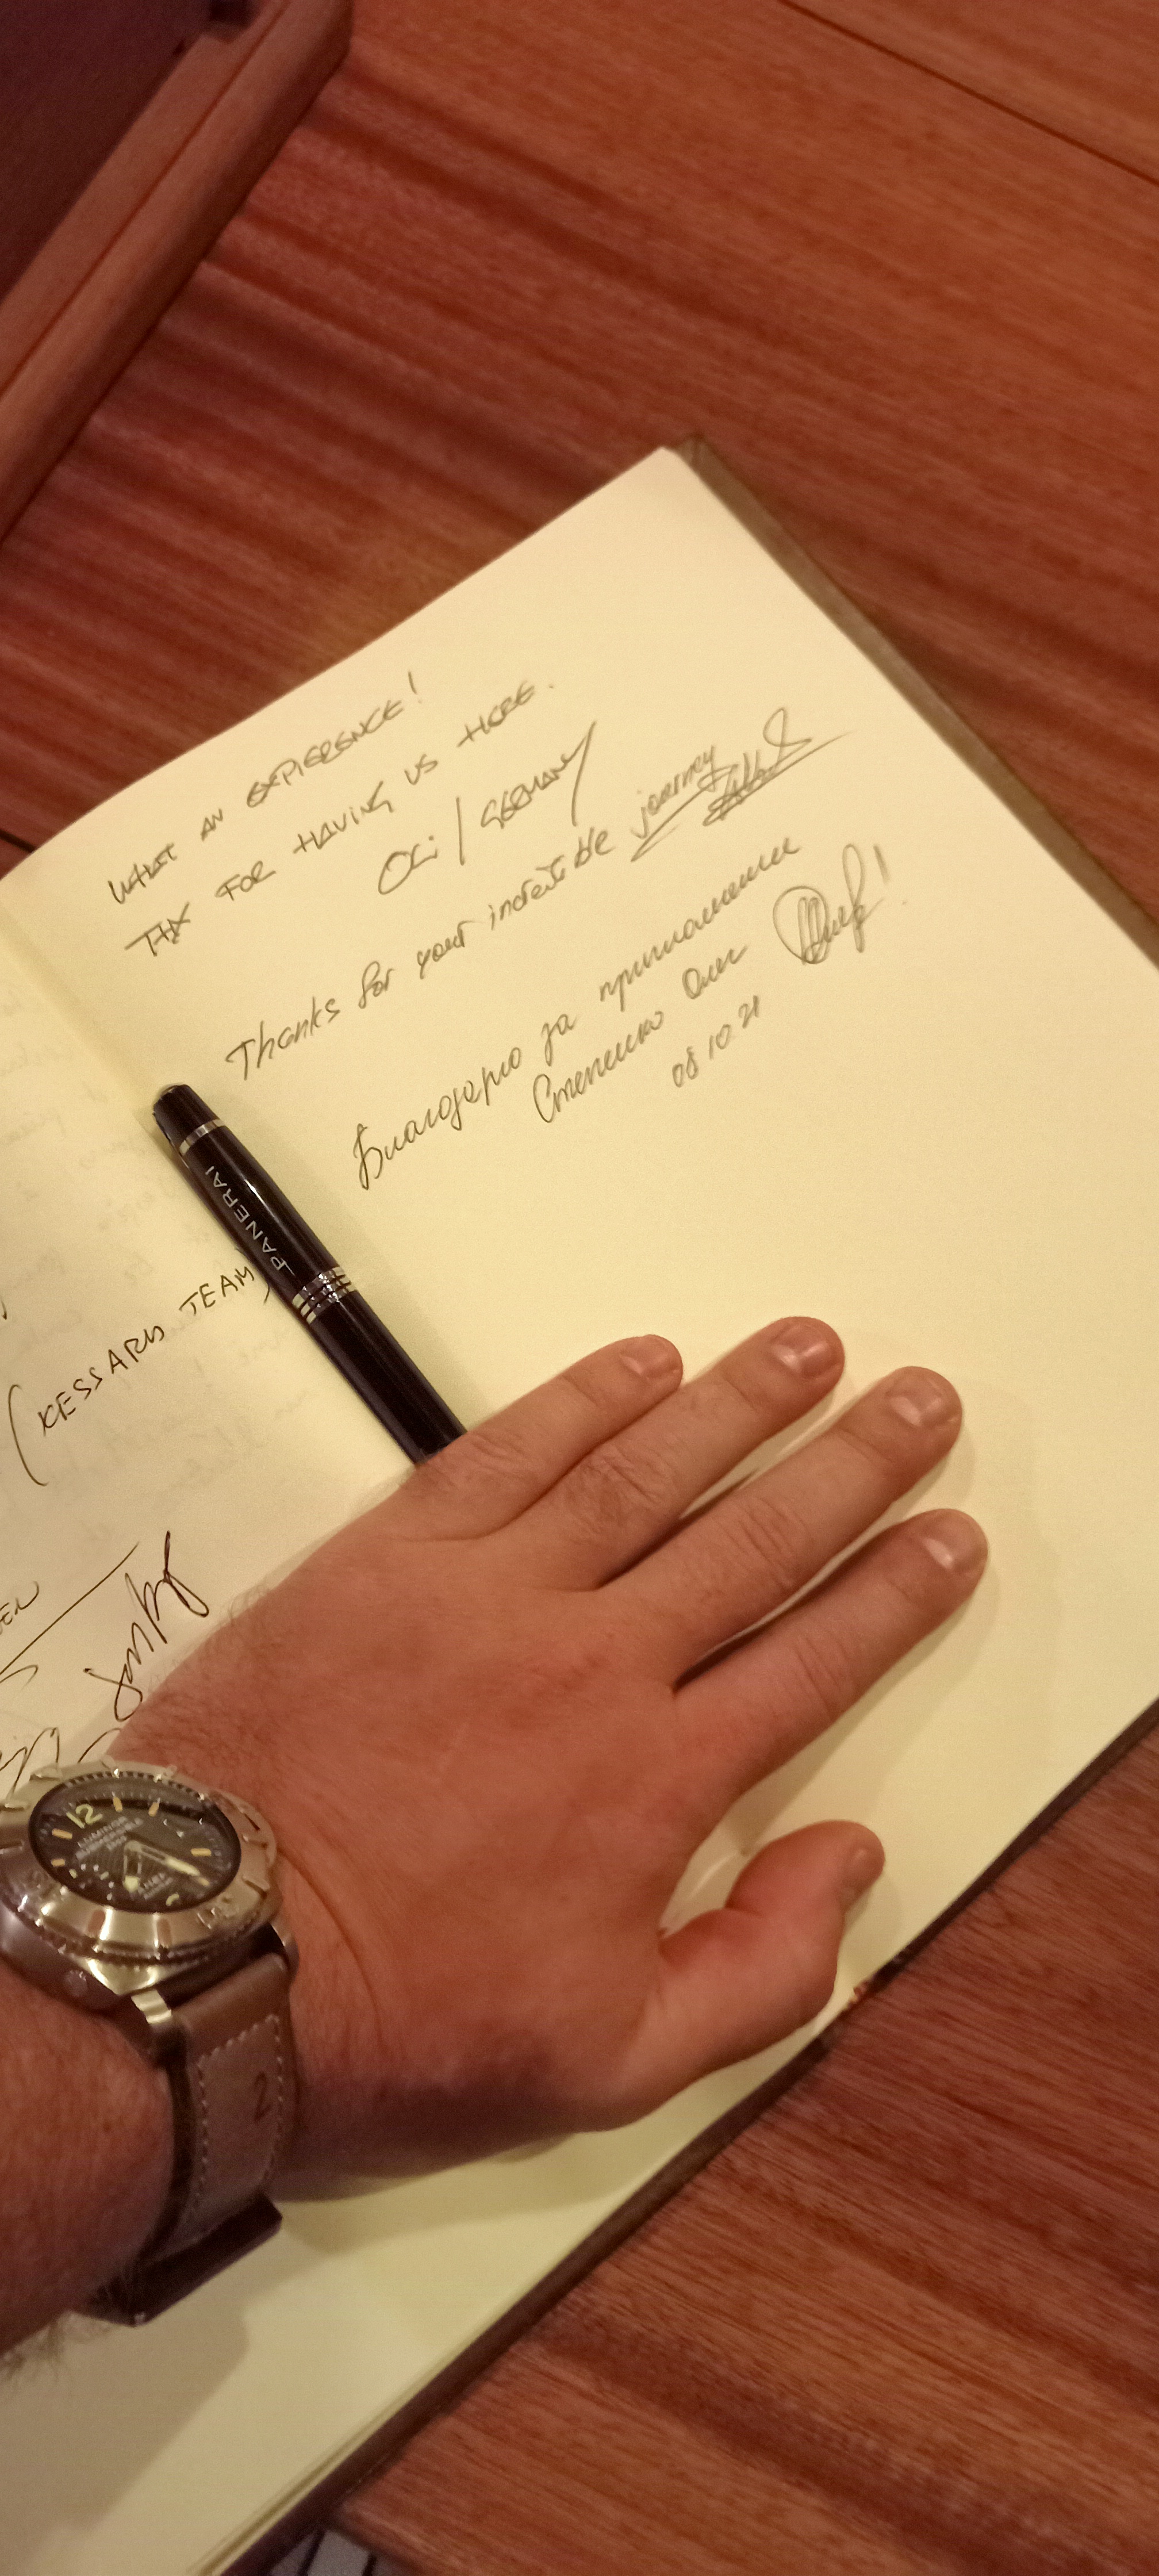 WHAT AN EXPIERENCE!
THX FOR HAVING US HERE.
Oli / GERMANY
Thanks for your incredible journey
Благодарю за приглашение
Степенко Олег
08.10.21
PANERAI
(KESSARIS TEAM)
12
LUMINOR
SUBMERSIBLE
2